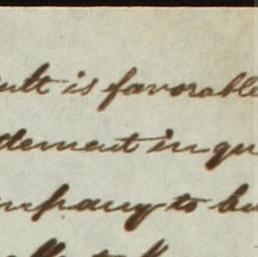 ult is favorable
ttlement in qu
ompany to bu